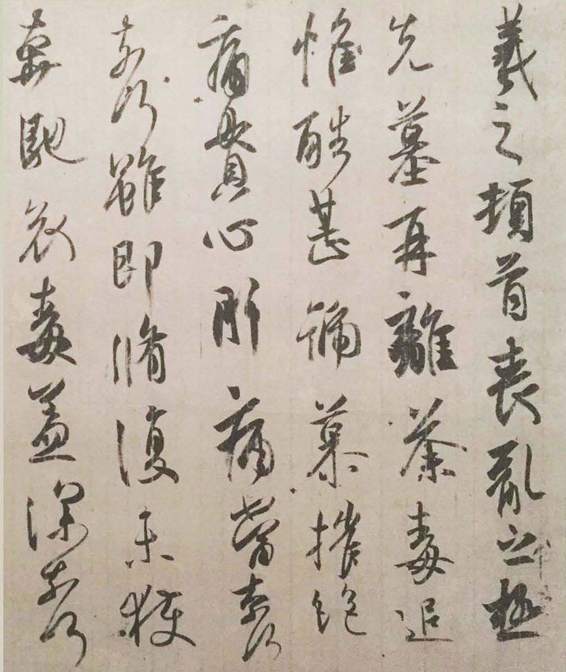 羲之頓首喪亂之極
先墓再離荼毒追
惟酷甚號慕摧絕
痛貫心肝痛當奈何
奈何雖即脩復未獲
奔馳哀毒益深奈何